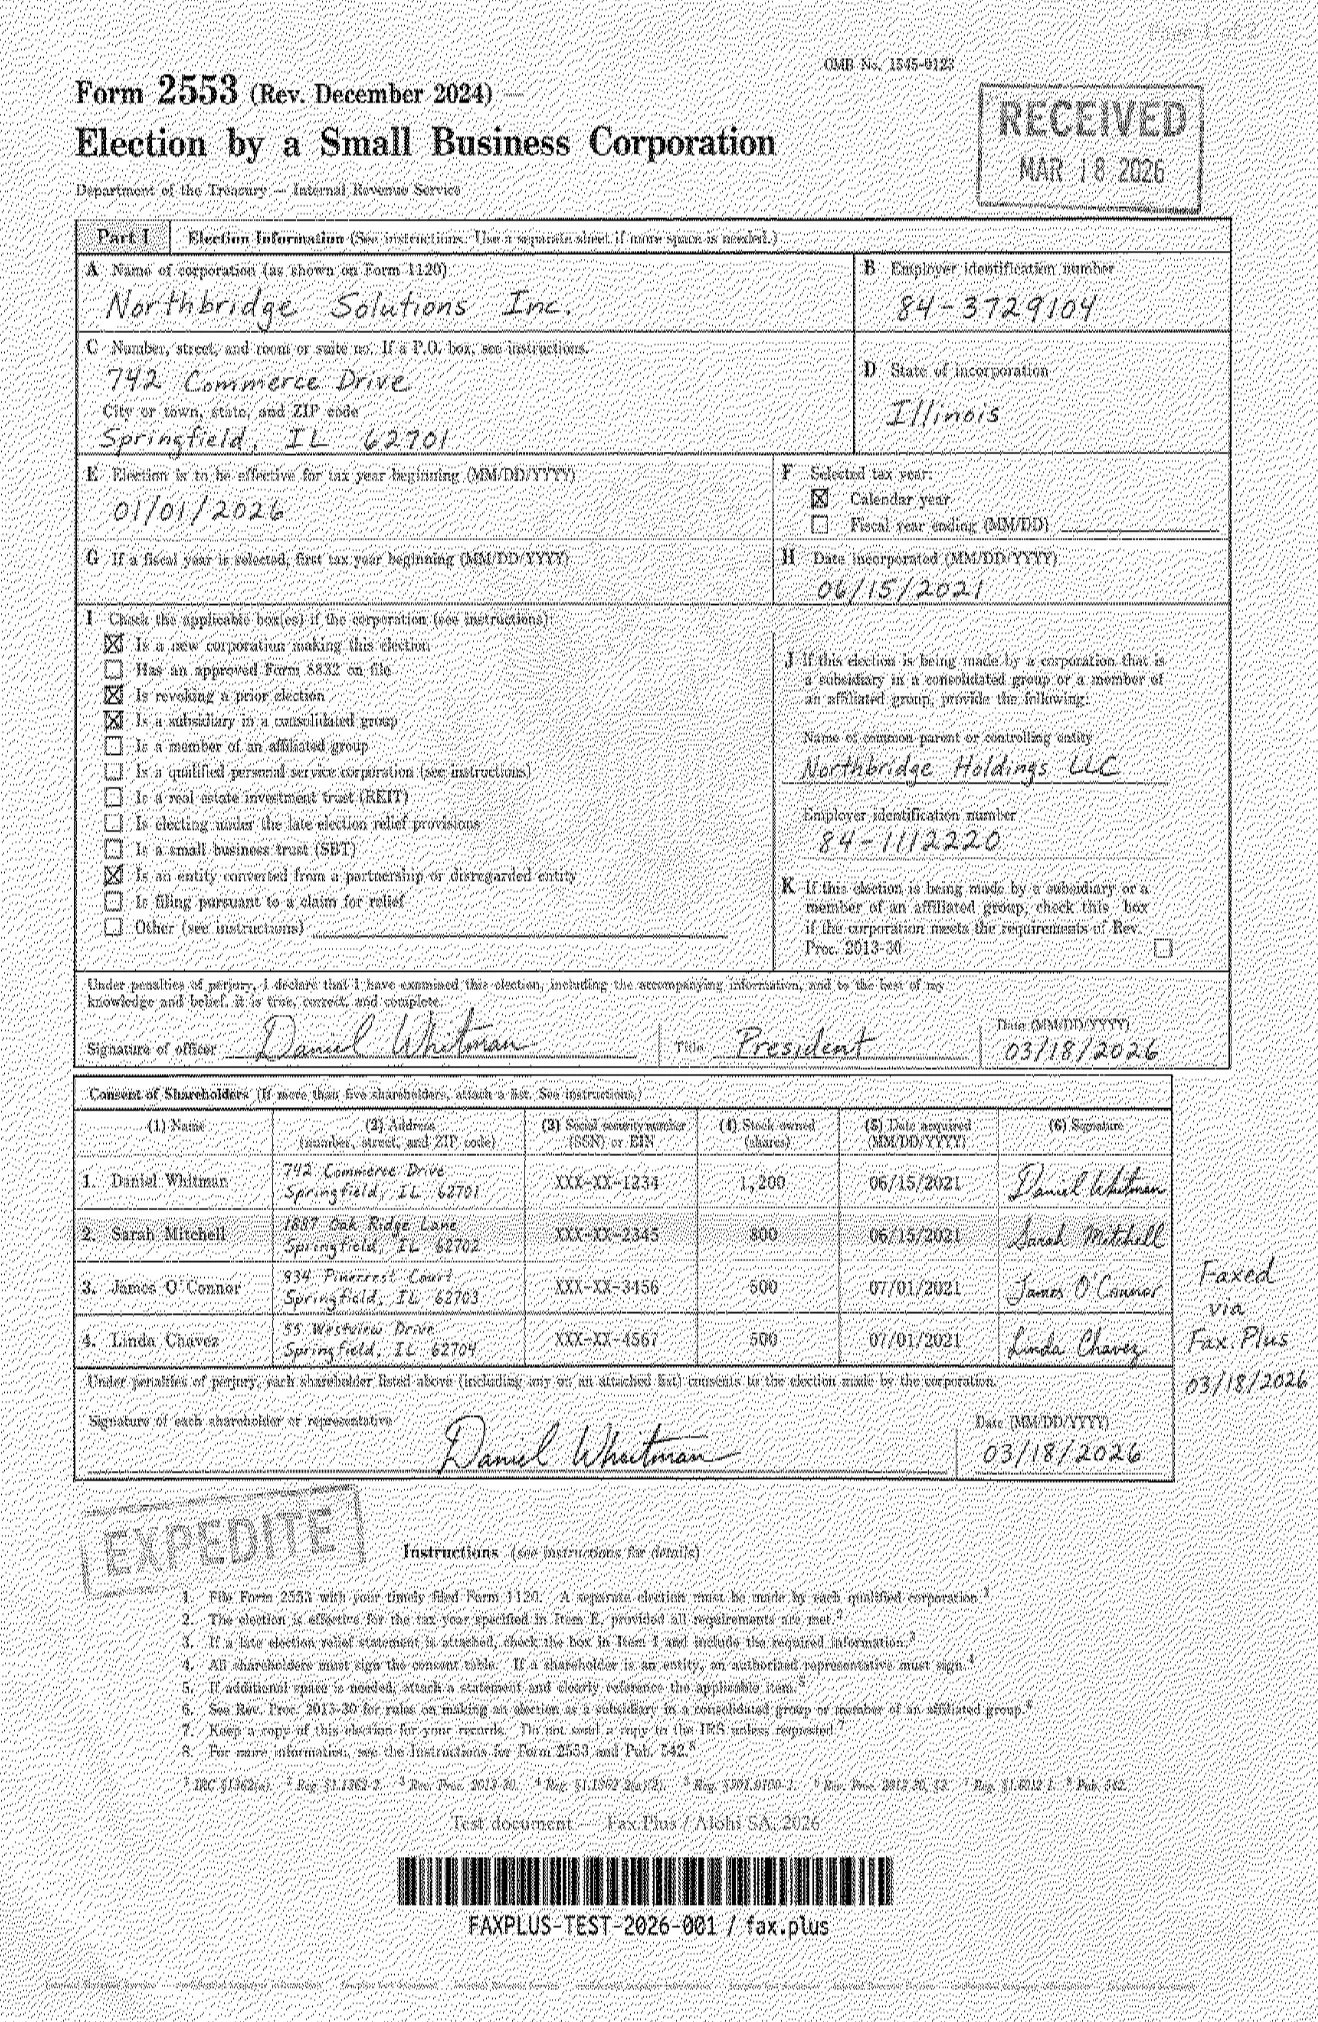 Page 1 of 2
OMB No. 1545-0123
Form 2553 (Rev. December 2024) —
Election by a Small Business Corporation
Department of the Treasury — Internal Revenue Service
RECEIVED
MAR 18 2026
Part I Election Information (See instructions. Use a separate sheet if more space is needed.)
A Name of corporation (as shown on Form 1120)
Northbridge Solutions Inc.
B Employer identification number
84-3729104
C Number, street, and room or suite no. If a P.O. box, see instructions.
742 Commerce Drive
City or town, state, and ZIP code
Springfield, IL 62701
D State of incorporation
Illinois
E Election is to be effective for tax year beginning (MM/DD/YYYY)
01/01/2026
F Selected tax year:
☒ Calendar year
☐ Fiscal year ending (MM/DD)
G If a fiscal year is selected, first tax year beginning (MM/DD/YYYY)
H Date incorporated (MM/DD/YYYY)
06/15/2021
I Check the applicable box(es) if the corporation (see instructions):
☒ Is a new corporation making this election
☐ Has an approved Form 8832 on file
☒ Is revoking a prior election
☒ Is a subsidiary in a consolidated group
☐ Is a member of an affiliated group
☐ Is a qualified personal service corporation (see instructions)
☐ Is a real estate investment trust (REIT)
☐ Is electing under the late election relief provisions
☐ Is a small business trust (SBT)
☒ Is an entity converted from a partnership or disregarded entity
☐ Is filing pursuant to a claim for relief
☐ Other (see instructions)
J If this election is being made by a corporation that is
a subsidiary in a consolidated group or a member of
an affiliated group, provide the following:
Name of common parent or controlling entity
Northbridge Holdings LLC
Employer identification number
84-1112220
K If this election is being made by a subsidiary or a
member of an affiliated group, check this box
if the corporation meets the requirements of Rev.
Proc. 2013-30 ☐
Under penalties of perjury, I declare that I have examined this election, including the accompanying information, and to the best of my
knowledge and belief, it is true, correct, and complete.
Signature of officer Daniel Whitman
Title President
Date (MM/DD/YYYY)
03/18/2026
Consent of Shareholders (If more than five shareholders, attach a list. See instructions.)
(1) Name
(2) Address
(number, street, and ZIP code)
(3) Social security number
(SSN) or EIN
(4) Stock owned
(shares)
(5) Date acquired
(MM/DD/YYYY)
(6) Signature
1. Daniel Whitman
742 Commerce Drive
Springfield, IL 62701
XXX-XX-1234 1,200 06/15/2021 Daniel Whitman
2. Sarah Mitchell
1887 Oak Ridge Lane
Springfield, IL 62702
XXX-XX-2345 800 06/15/2021 Sarah Mitchell
3. James O'Connor
934 Pinecrest Court
Springfield, IL 62703
XXX-XX-3456 500 07/01/2021 James O'Connor
4. Linda Chavez
55 Westview Drive
Springfield, IL 62704
XXX-XX-4567 500 07/01/2021 Linda Chavez
Faxed
via
Fax.Plus
03/18/2026
Under penalties of perjury, each shareholder listed above (including any on an attached list) consents to the election made by the corporation.
Signature of each shareholder or representative
Daniel Whitman
Date (MM/DD/YYYY)
03/18/2026
EXPEDITE
Instructions (see instructions for details)
1. File Form 2553 with your timely filed Form 1120. A separate election must be made by each qualified corporation.1
2. The election is effective for the tax year specified in Item E, provided all requirements are met.2
3. If a late election relief statement is attached, check the box in Item I and include the required information.3
4. All shareholders must sign the consent table. If a shareholder is an entity, an authorized representative must sign.4
5. If additional space is needed, attach a statement and clearly reference the applicable item.5
6. See Rev. Proc. 2013-30 for rules on making an election as a subsidiary in a consolidated group or member of an affiliated group.6
7. Keep a copy of this election for your records. Do not send a copy to the IRS unless requested.7
8. For more information, see the Instructions for Form 2553 and Pub. 542.8
1 IRC §1362(a). 2 Reg. §1.1362-2. 3 Rev. Proc. 2013-30. 4 Reg. §1.1362-2(a)(2). 5 Reg. §301.9100-1. 6 Rev. Proc. 2013-30, §3. 7 Reg. §1.6012-1. 8 Pub. 542.
Test document — Fax.Plus / Alohi SA, 2026
FAXPLUS-TEST-2026-001 / fax.plus